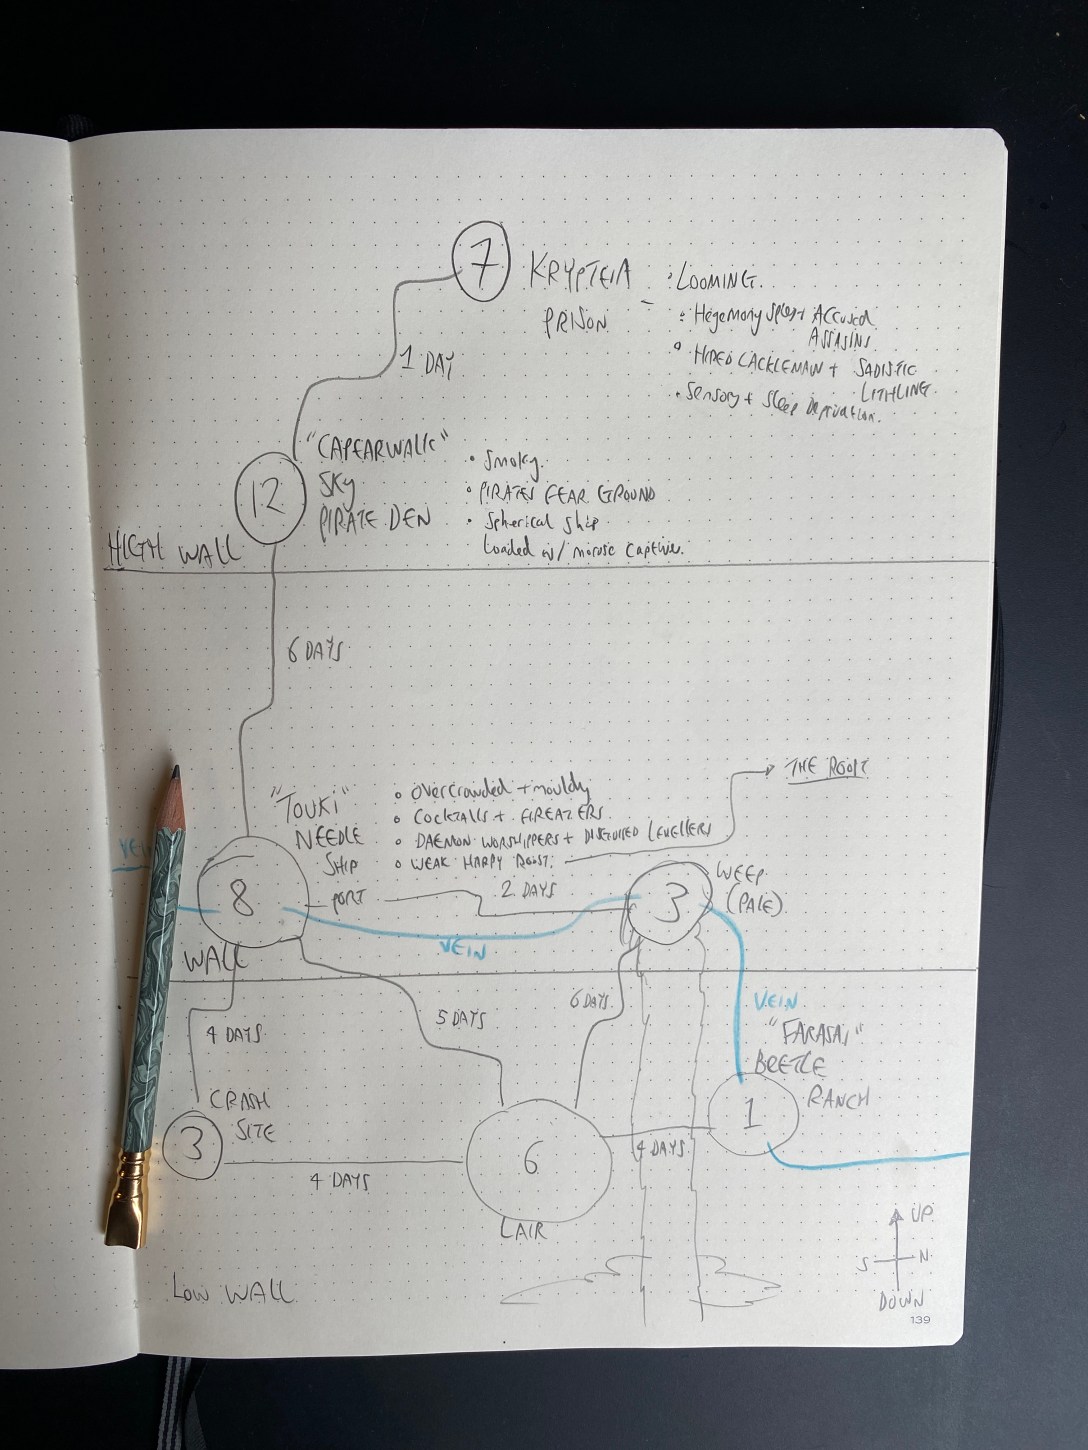 7
KRYPTEIA
PRISON
• LOOMING.
• Hegemony Accused
ASSASINS
• HIRED CACKLEMAW + SADISTIC
LITHLING
• Sensory + Sleep Deprivation.
1 DAY
12
SKY
PIRATE DEN
• Smoky.
• PIRATES FEAR GROUND
• Spherical ship
Loaded w/ morose captive.
HIGH WALL
6 DAYS
"TOUKI"
NEEDLE
SHIP
PORT
• Overcrowded + mouldy
• COCKTAILS + FIREATERS.
• DAEMON WORSHIPPERS + DISGUISED LEVELLERS
• WEAK HARPY ROOST.
THE ROOST
VEIN
8
2 DAYS
3
WEEP
(PALE)
VEIN
WALL
4 DAYS
5 DAYS
6 DAYS
VEIN
"FARASAI"
BEETLE
RANCH
1
CRASH
SITE
3
4 DAYS
6
LAIR
4 DAYS
LOW WALL
UP
S N
DOWN
139